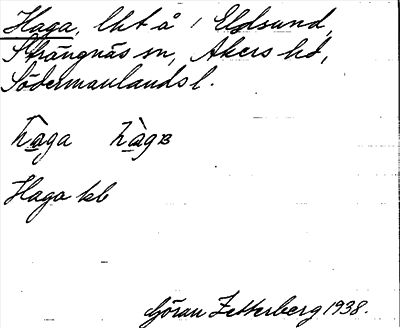 Haga, lht å 1 Eldsund,
Strängnäs sn, Åkers hd,
Södermanlands l.
hàga hàgɐ
Haga kb
Göran Zetterberg 1938.